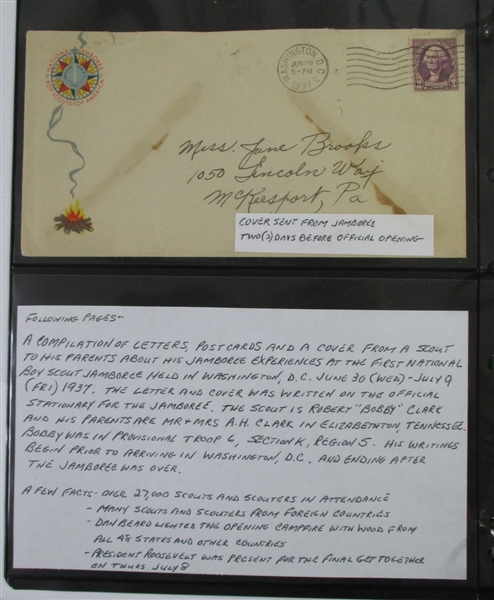 NATIONAL JAMBOREE
BOY SCOUTS OF AMERICA
WASHINGTON, D.C.
JUN 28
6-PM
1937
Miss. Jane Brooks
1050 Lincoln Way
McKeesport, Pa
COVER SENT FROM JAMBOREE
TWO(2) DAYS BEFORE OFFICIAL OPENING
FOLLOWING PAGES-
A COMPILATION OF LETTERS, POSTCARDS AND A COVER FROM A SCOUT
TO HIS PARENTS ABOUT HIS JAMBOREE EXPERIENCES AT THE FIRST NATIONAL
BOY SCOUT JAMBOREE HELD IN WASHINGTON, D.C. JUNE 30 (WED)-JULY 9
(FRI) 1937. THE LETTER AND COVER WAS WRITTEN ON THE OFFICIAL
STATIONARY FOR THE JAMBOREE. THE SCOUT IS ROBERT "BOBBY" CLARK
AND HIS PARENTS ARE MR + MRS A.H. CLARK IN ELIZABETHTON, TENNESSEE.
BOBBY WAS IN PROVISIONAL TROOP 6, SECTION K, REGION 5. HIS WRITINGS
BEGIN PRIOR TO ARRIVING IN WASHINGTON, D.C. AND ENDING AFTER
THE JAMBOREE WAS OVER.
A FEW FACTS- OVER 27,000 SCOUTS AND SCOUTERS IN ATTENDANCE
- MANY SCOUTS AND SCOUTERS FROM FOREIGN COUNTRIES
- DAN BEARD LIGHTED THE OPENING CAMPFIRE WITH WOOD FROM
ALL 48 STATES AND OTHER COUNTRIES
- PRESIDENT ROOSEVELT WAS PRESENT FOR THE FINAL GET TOGETHER
ON THURS. JULY 8